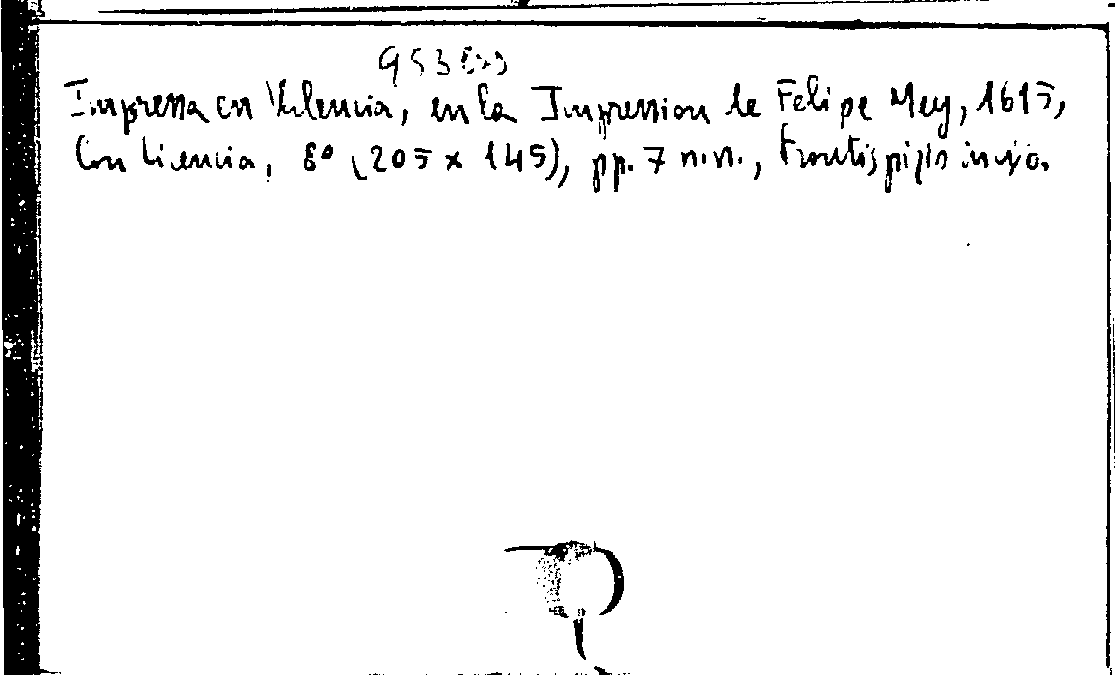 Impressa en Valencia, en la Impression de Felipe Mey, 1615,
Con licencia, 8° (205 x 145), pp. 7 n.n., frontispizio inciso.